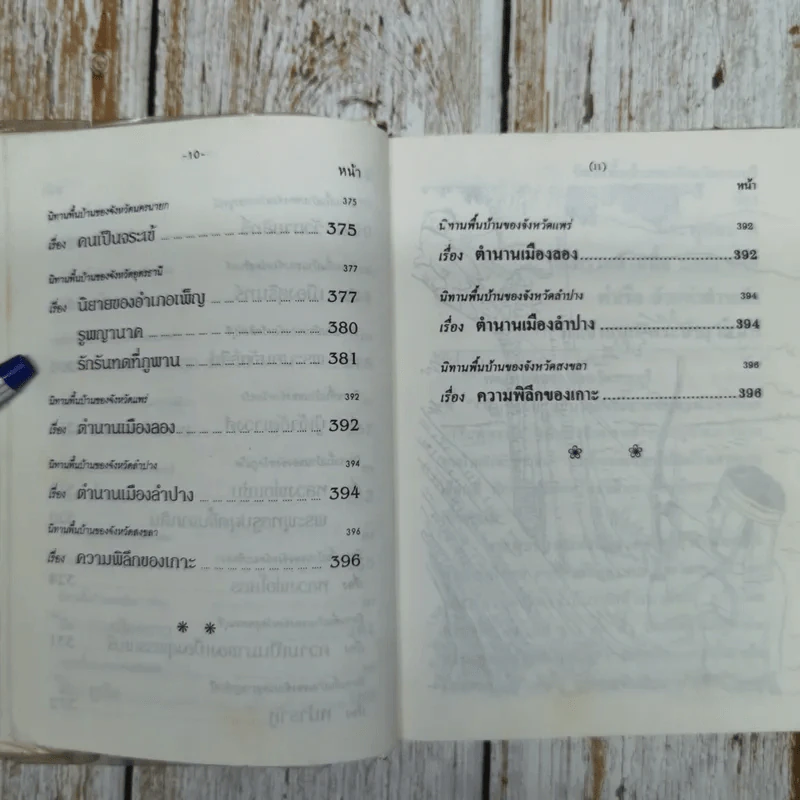 -10-
หน้า
นิทานพื้นบ้านของจังหวัดนครนายก 375
เรื่อง คนเป็นจระเข้ 375
นิทานพื้นบ้านของจังหวัดอุดรธานี 377
เรื่อง นิยายของอำเภอเพ็ญ 377
รูพญานาค 380
รักรันทดที่ภูพาน 381
นิทานพื้นบ้านของจังหวัดแพร่ 392
เรื่อง ตำนานเมืองลอง 392
นิทานพื้นบ้านของจังหวัดลำปาง 394
เรื่อง ตำนานเมืองลำปาง 394
นิทานพื้นบ้านของจังหวัดสงขลา 396
เรื่อง ความพิลึกของเกาะ 396
(11)
หน้า
นิทานพื้นบ้านของจังหวัดแพร่ 392
เรื่อง ตำนานเมืองลอง 392
นิทานพื้นบ้านของจังหวัดลำปาง 394
เรื่อง ตำนานเมืองลำปาง 394
นิทานพื้นบ้านของจังหวัดสงขลา 396
เรื่อง ความพิลึกของเกาะ 396